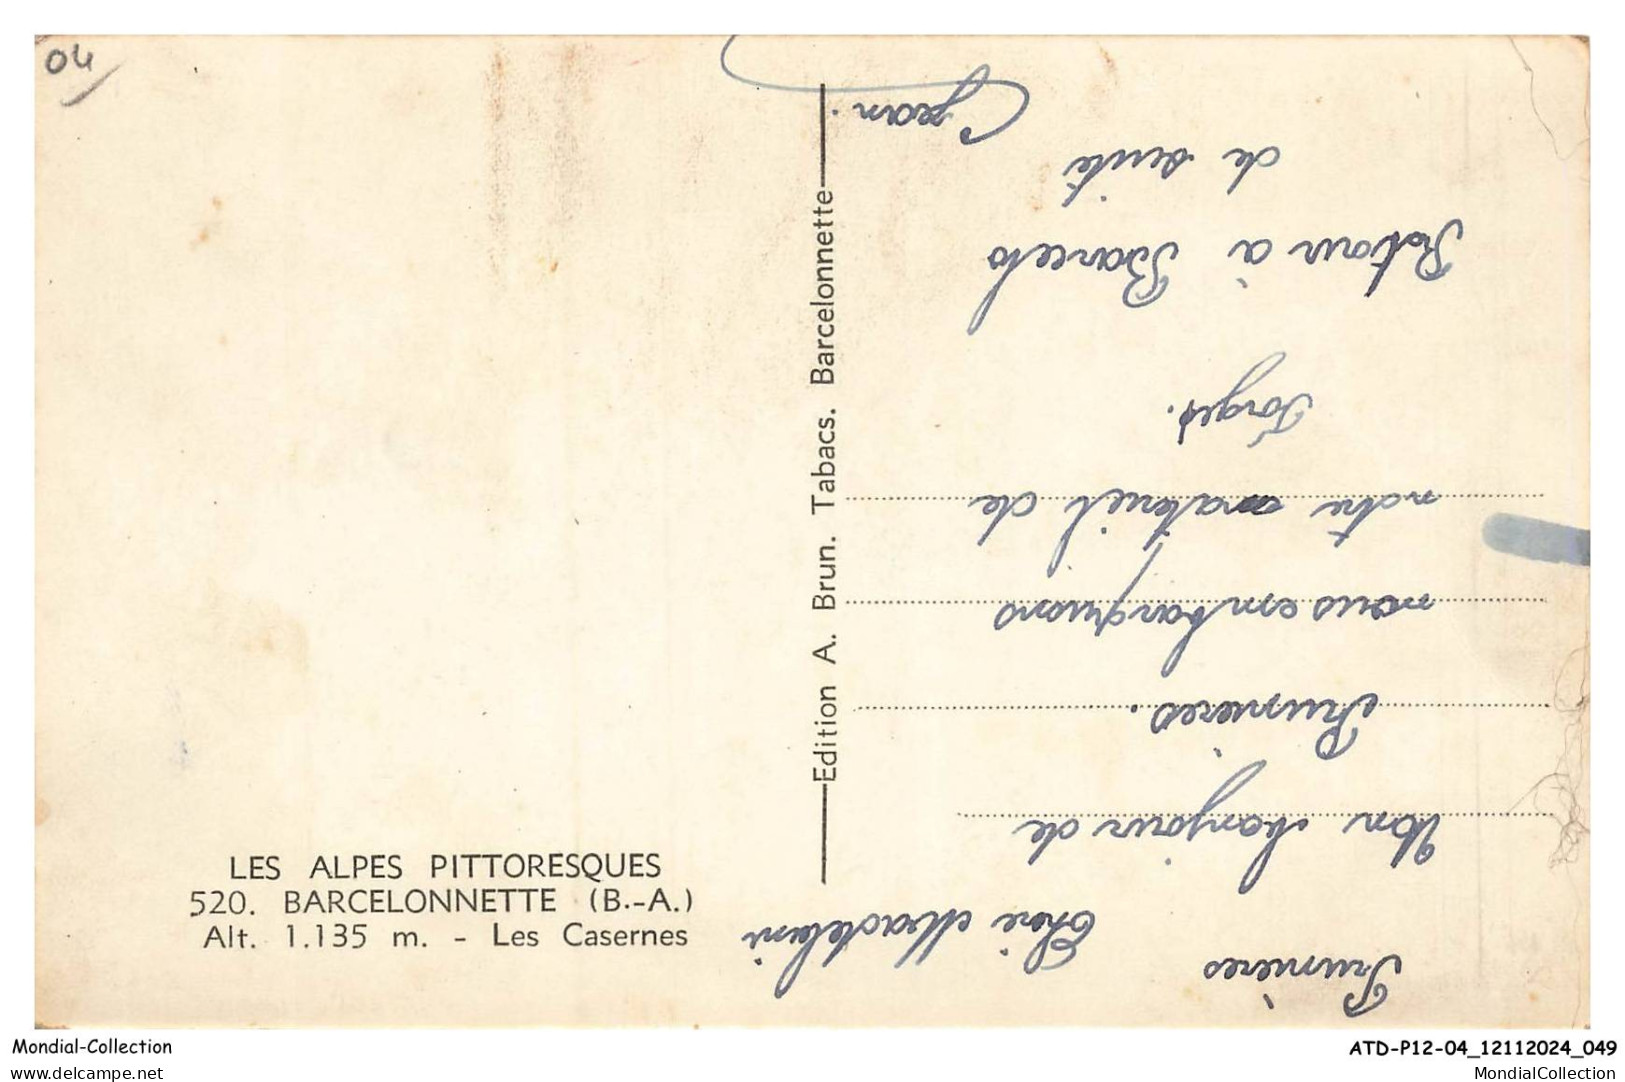 04
LES ALPES PITTORESQUES
520. BARCELONNETTE (B.-A.)
Alt. 1.135 m. - Les Casernes
Edition A. Brun. Tabacs. Barcelonnette
Prunières
Chère
Un bonjour de
Prunières.
nous embarquons
notre matériel de
Forges.
Retour à Barcelo
de suite
Jean.
Mondial-Collection
delcampe.net
ATD-P12-04_12112024_049
MondialCollection